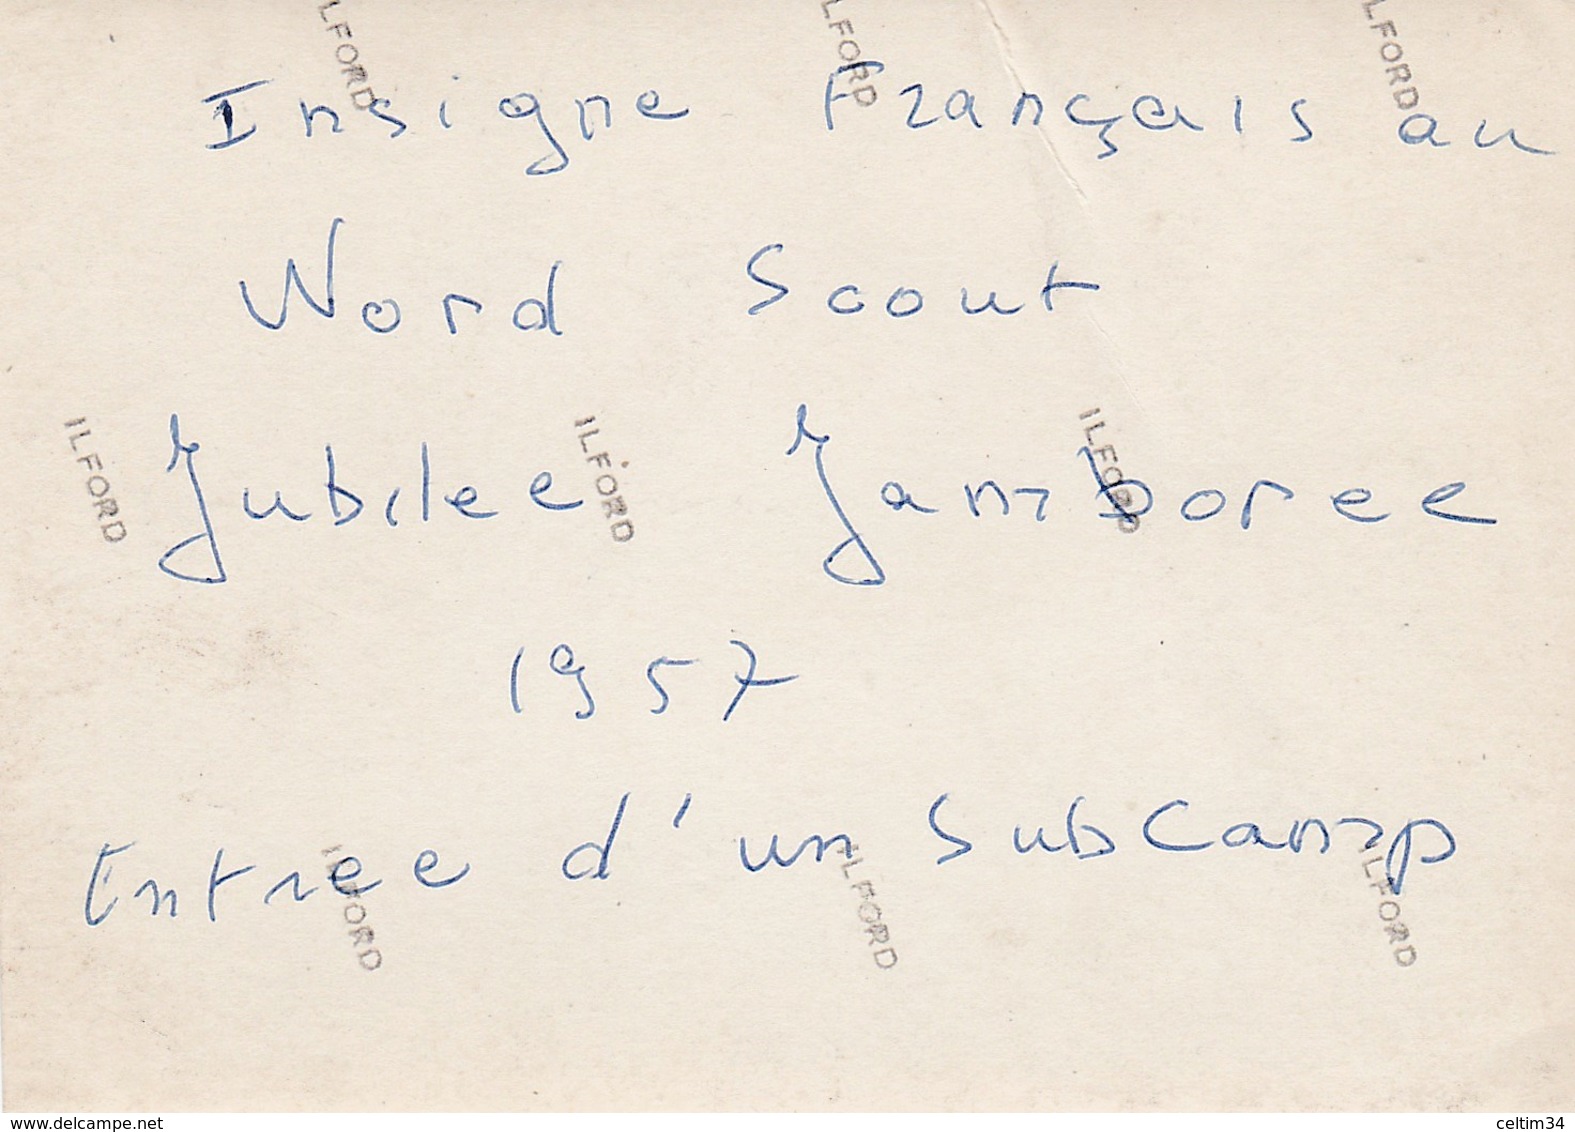 ILFORD ILFORD ILFORD
Insigne Français au
Word Scout
ILFORD ILFORD ILFORD
Jubilee Jamboree
1957
Entree d'un SubCamp
ILFORD ILFORD ILFORD
www.delcampe.net celtim34